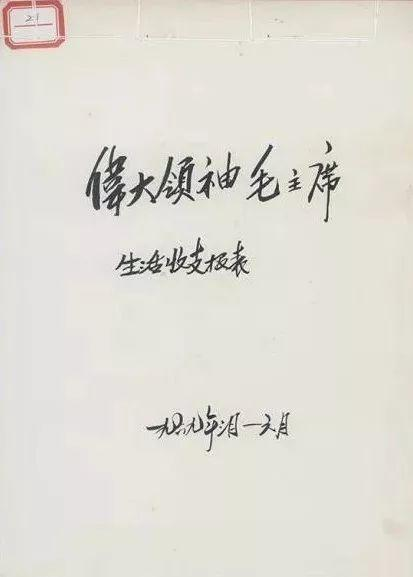 21
偉大領袖毛主席
生活收支报表
一九六九年月一六月